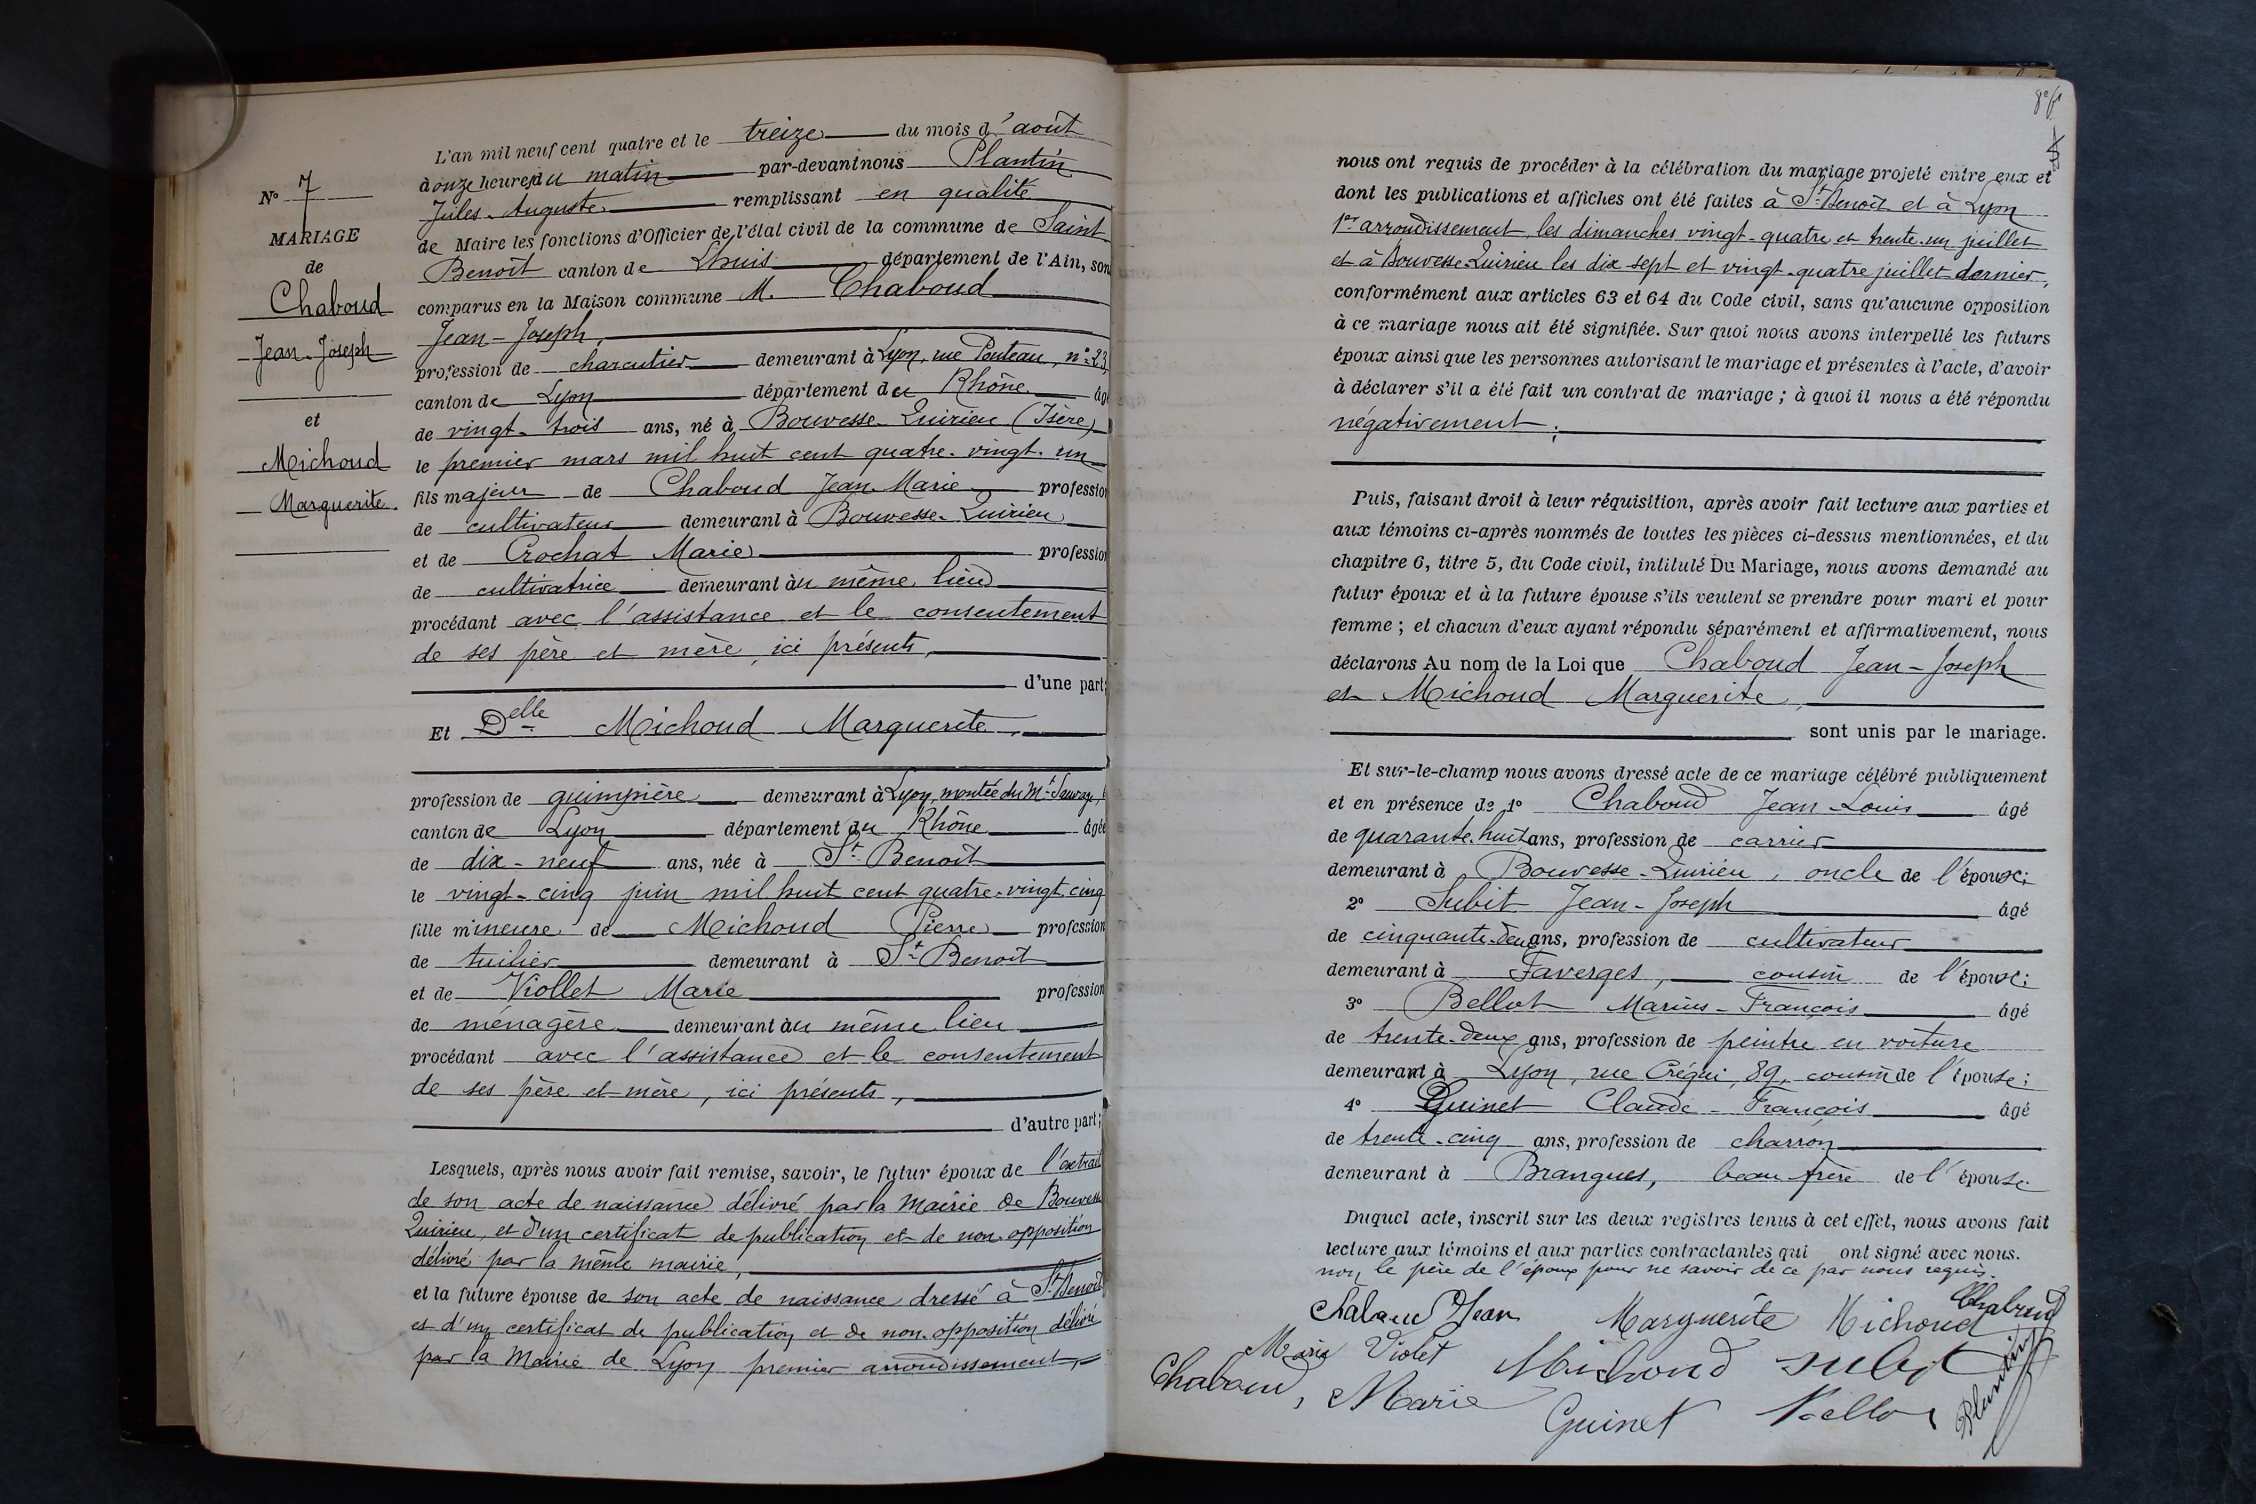 N° 7
MARIAGE
de
Chaboud
Jean-Joseph
et
Michoud
Marguerite.
L'an mil neuf cent quatre et le treize du mois d'août
à onze heures du matin par-devant nous Plantin
Jules-Auguste remplissant en qualité
de Maire les fonctions d'Officier de l'état civil de la commune de Saint
Benoît canton de Lhuis département de l'Ain, son
comparus en la Maison commune M. Chaboud
Jean-Joseph,
profession de charcutier demeurant à Lyon, rue Pouteau, n° 23,
canton de Lyon département du Rhône âgé
de vingt-trois ans, né à Bouvesse-Quirieu (Isère)
le premier mars mil huit cent quatre-vingt-un
fils majeur de Chaboud Jean-Marie profession
de cultivateur demeurant à Bouvesse-Quirieu
et de Crochat Marie profession
de cultivatrice demeurant au même lieu
procédant avec l'assistance et le consentement
de ses père et mère, ici présents,
d'une part;
Et Delle Michoud Marguerite,
profession de guimpière demeurant à Lyon, montée du Mt Sauvage,
canton de Lyon département du Rhône âgée
de dix-neuf ans, née à St Benoît
le vingt-cinq juin mil huit cent quatre-vingt cinq
fille mineure de Michoud Pierre profession
de tuilier demeurant à St Benoît
et de Viollet Marie profession
de ménagère demeurant au même lieu
procédant avec l'assistance et le consentement
de ses père et mère, ici présents,
d'autre part;
Lesquels, après nous avoir fait remise, savoir, le futur époux de l'extrait
de son acte de naissance délivré par la Mairie de Bouvesse
Quirieu, et d'un certificat de publication et de non-opposition
délivré par la même mairie,
et la future épouse de son acte de naissance dressé à St Benoît
et d'un certificat de publication et de non-opposition délivré
par la Mairie de Lyon premier arrondissement,
nous ont requis de procéder à la célébration du mariage projeté entre eux et
dont les publications et affiches ont été faites à St Benoît et à Lyon
1er arrondissement, les dimanches vingt-quatre et trente-un juillet
et à Bouvesse-Quirieu les dix-sept et vingt-quatre juillet dernier,
conformément aux articles 63 et 64 du Code civil, sans qu'aucune opposition
à ce mariage nous ait été signifiée. Sur quoi nous avons interpellé les futurs
époux ainsi que les personnes autorisant le mariage et présentes à l'acte, d'avoir
à déclarer s'il a été fait un contrat de mariage ; à quoi il nous a été répondu
négativement.
Puis, faisant droit à leur réquisition, après avoir fait lecture aux parties et
aux témoins ci-après nommés de toutes les pièces ci-dessus mentionnées, et du
chapitre 6, titre 5, du Code civil, intitulé Du Mariage, nous avons demandé au
futur époux et à la future épouse s'ils veulent se prendre pour mari et pour
femme ; et chacun d'eux ayant répondu séparément et affirmativement, nous
déclarons Au nom de la Loi que Chaboud Jean-Joseph
et Michoud Marguerite,
sont unis par le mariage.
Et sur-le-champ nous avons dressé acte de ce mariage célébré publiquement
et en présence de 1° Chaboud Jean-Louis âgé
de quarante-huit ans, profession de carrier
demeurant à Bouvesse-Quirieu, oncle de l'époux;
2° Subit Jean-Joseph âgé
de cinquante-deux ans, profession de cultivateur
demeurant à Faverges, cousin de l'épouse;
3° Bellot Marius-François âgé
de trente-deux ans, profession de peintre en voiture
demeurant à Lyon, rue Créqui, 89, cousin de l'épouse;
4° Guinet Claude-François âgé
de trente-cinq ans, profession de charron
demeurant à Brangues, beau-frère de l'épouse
Duquel acte, inscrit sur les deux registres tenus à cet effet, nous avons fait
lecture aux témoins et aux parties contractantes qui ont signé avec nous.
non le père de l'époux pour ne savoir de ce par nous requis.
Chaboud Jean Marguerite Michoud Chaboud
Maria Violet Michoud Subit
Chaboud, Marie Guinet Bellot Plantin